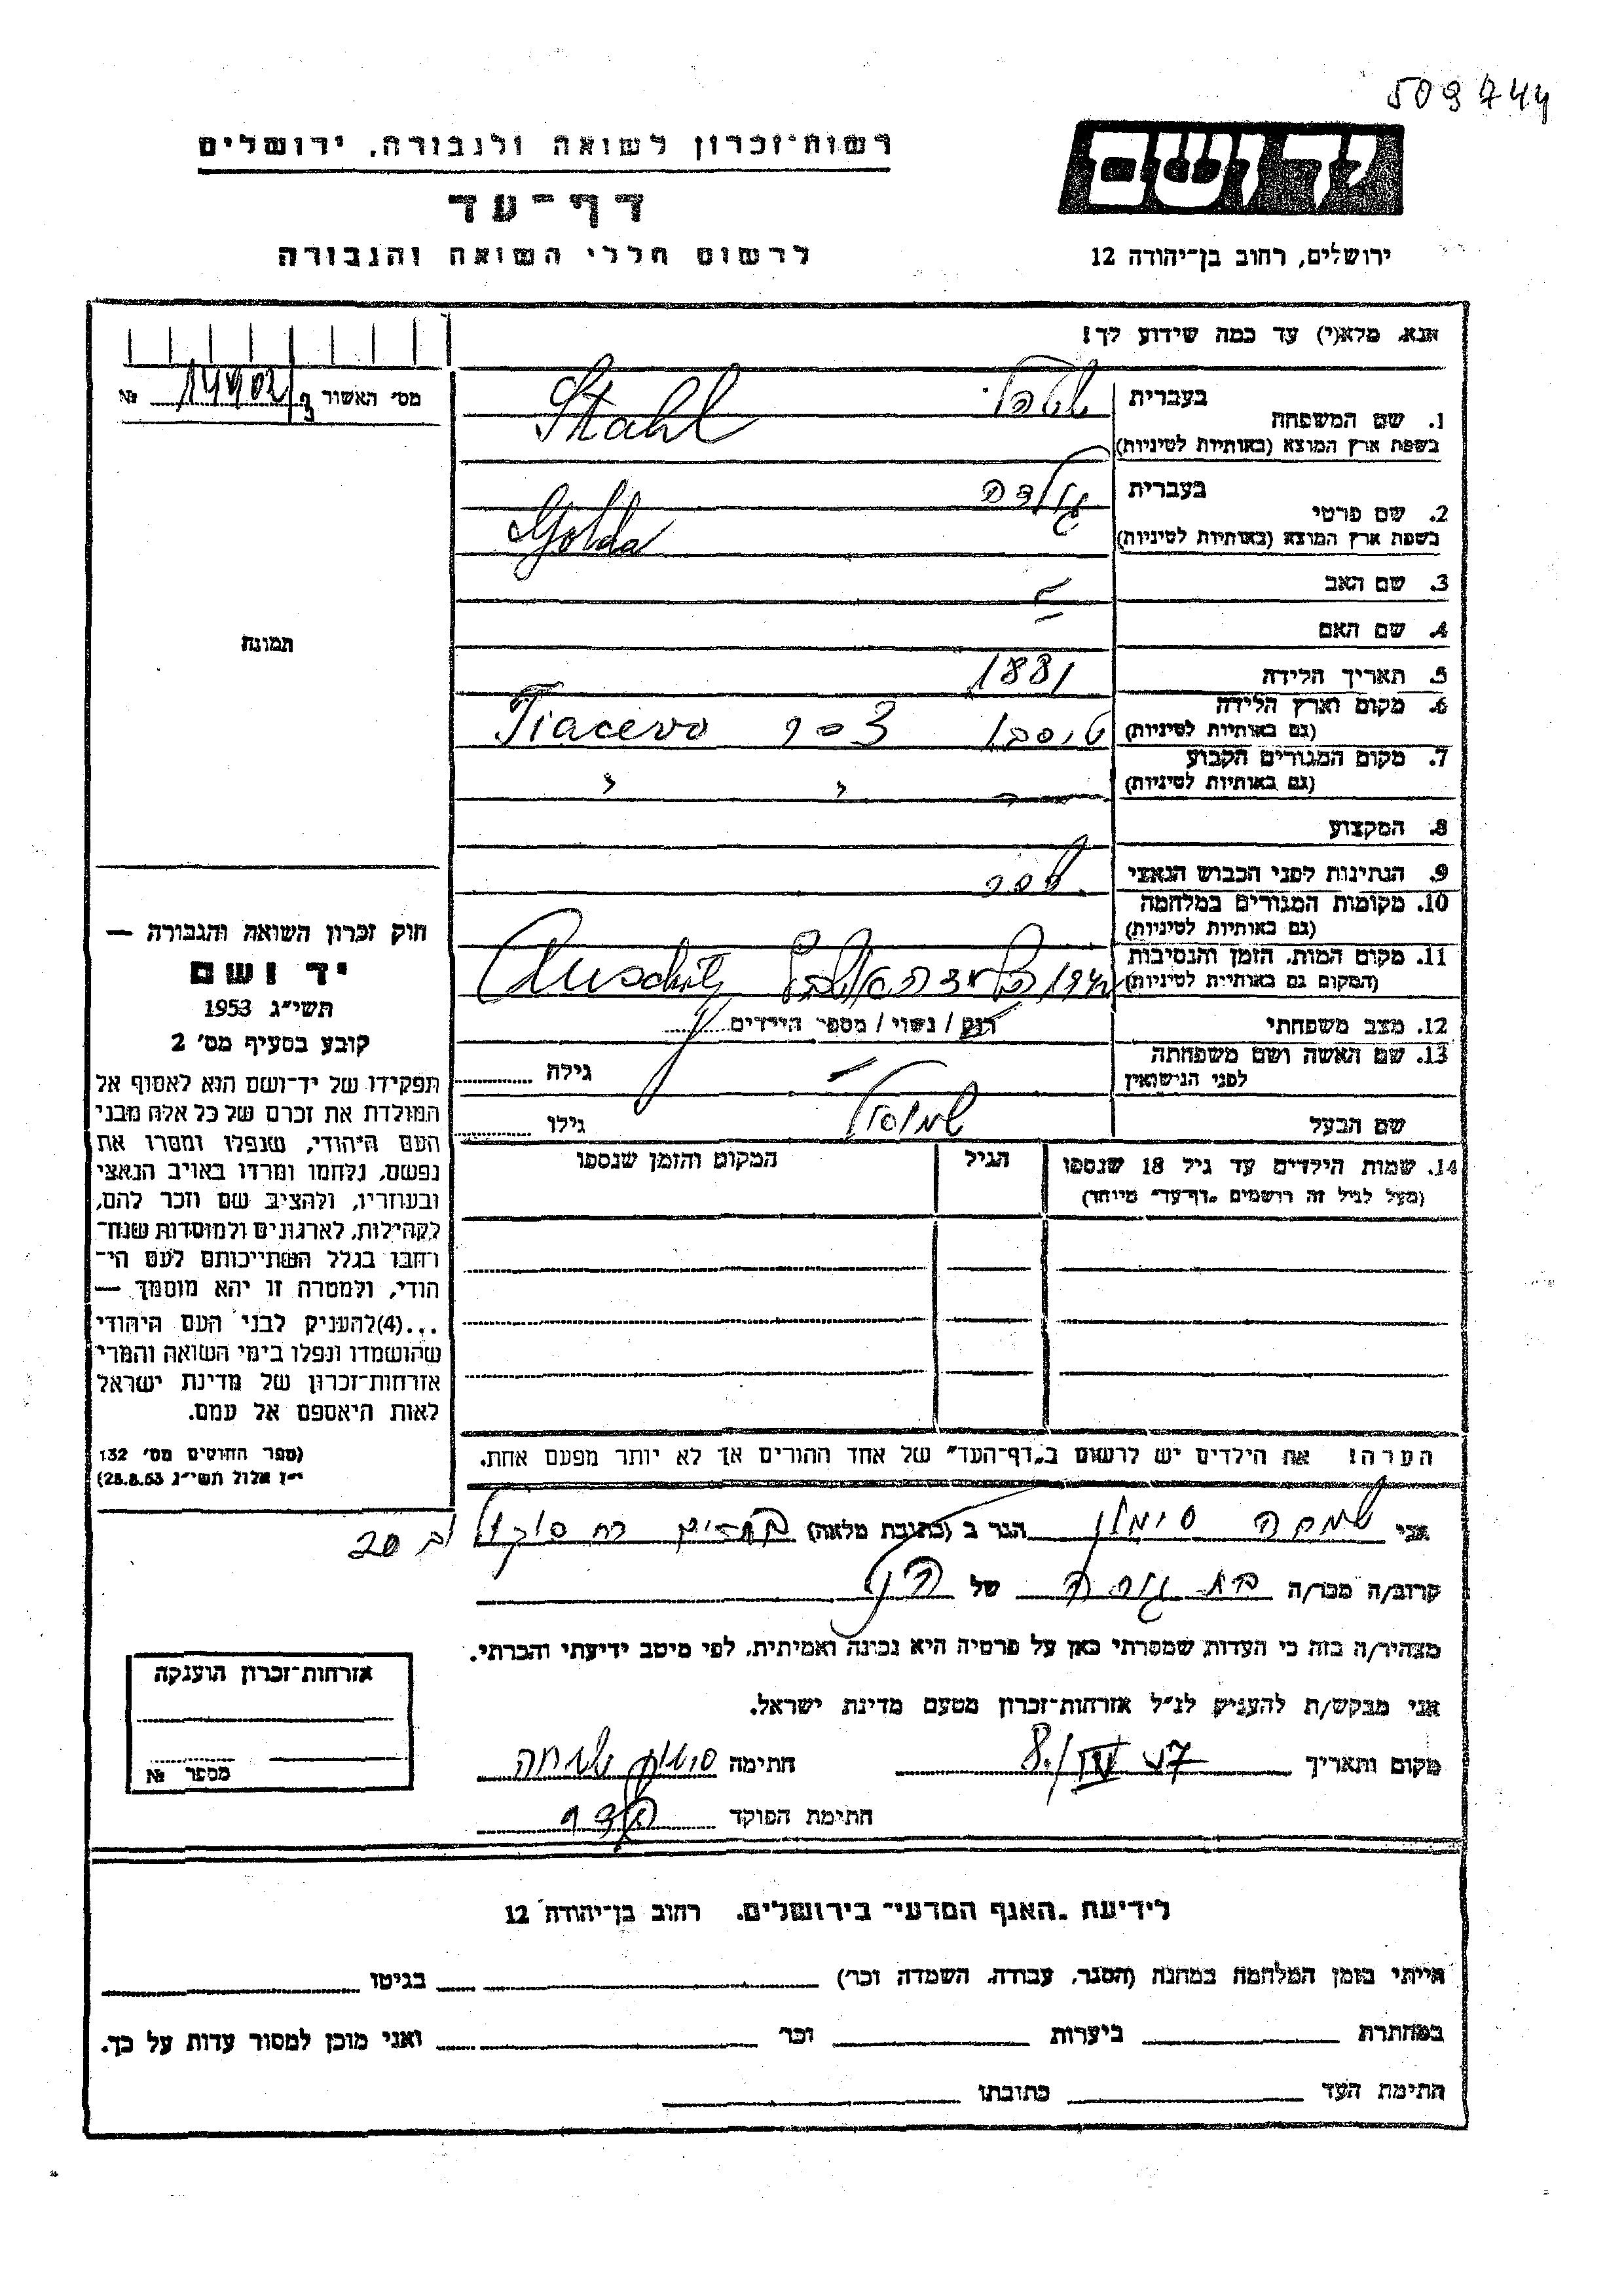 509744
רשות־זכרון לשואה ולגבורה, ירושלים
יד ושם
דף־עד
לרשום חללי השואה והגבורה
ירושלים, רחוב בן־יהודה 12
אנא, מלא(י) עד כמה שידוע לך!
מס׳ האשור №
1. שם המשפחה בעברית
בשפת ארץ המוצא (באותיות לטיניות) Stahl
2. שם פרטי בעברית גולדה
בשפת ארץ המוצא (באותיות לטיניות) Golda
3. שם האב
4. שם האם
תמונה
5. תאריך הלידה 1881
6. מקום וארץ הלידה
(גם באותיות לטיניות) Tiacevo
7. מקום המגורים הקבוע
(גם באותיות לטיניות) " "
8. המקצוע
9. הנתינות לפני הכבוש הנאצי
10. מקומות המגורים במלחמה
(גם באותיות לטיניות)
11. מקום המות, הזמן והנסיבות
(המקום גם באותיות לטיניות) Auschitz
12. מצב משפחתי רוק / נשוי / מספר הילדים
13. שם האשה ושם משפחתה גילה
לפני הנישואין
שם הבעל שמואל גילו
14. שמות הילדים עד גיל 18 שנספו הגיל המקום והזמן שנספו
(מעל לגיל זה רושמים „דף־עד״ מיוחד)
חוק זכרון השואה והגבורה —
יד ושם
תשי״ג 1953
קובע בסעיף מס׳ 2
תפקידו של יד־ושם הוא לאסוף אל
המולדת את זכרם של כל אלה מבני
העם היהודי, שנפלו ומסרו את
נפשם, נלחמו ומרדו באויב הנאצי
ובעוזריו, ולהציב שם וזכר להם,
לקהילות, לארגונים ולמוסדות שנח־
רחבו בגלל השתייכותם לעם הי־
הודי, ולמטרה זו יהא מוסמך —
...(4)להעניק לבני העם היהודי
שהושמדו ונפלו בימי השואה והמרי
אזרחות־זכרון של מדינת ישראל
לאות היאספם אל עמם.
(ספר החוקים מס׳ 132
י״ז אלול תשי״ג 28.8.53)
הערה! את הילדים יש לרשום ב„דף־העד״ של אחד ההורים אך לא יותר מפעם אחת.
אני שמחה סימון הגר ב (כתובת מלאה)
קרוב/ה מכר/ה של
מצהיר/ה בזה כי העדות שמסרתי כאן על פרטיה היא נכונה ואמיתית, לפי מיטב ידיעתי והכרתי.
אני מבקש/ת להעניק לנ״ל אזרחות־זכרון מטעם מדינת ישראל.
מקום ותאריך 8./IV 57 חתימה סימון שמחה
חתימת הפוקד
אזרחות־זכרון הוענקה
מספר №
לידיעת „האגף המדעי״ בירושלים, רחוב בן־יהודה 12
הייתי בזמן המלחמה במחנה (הסגר, עבודה, השמדה וכו׳) בגיטו
במחתרת ביערות וכו׳ ואני מוכן למסור עדות על כך.
חתימת העד כתובתו